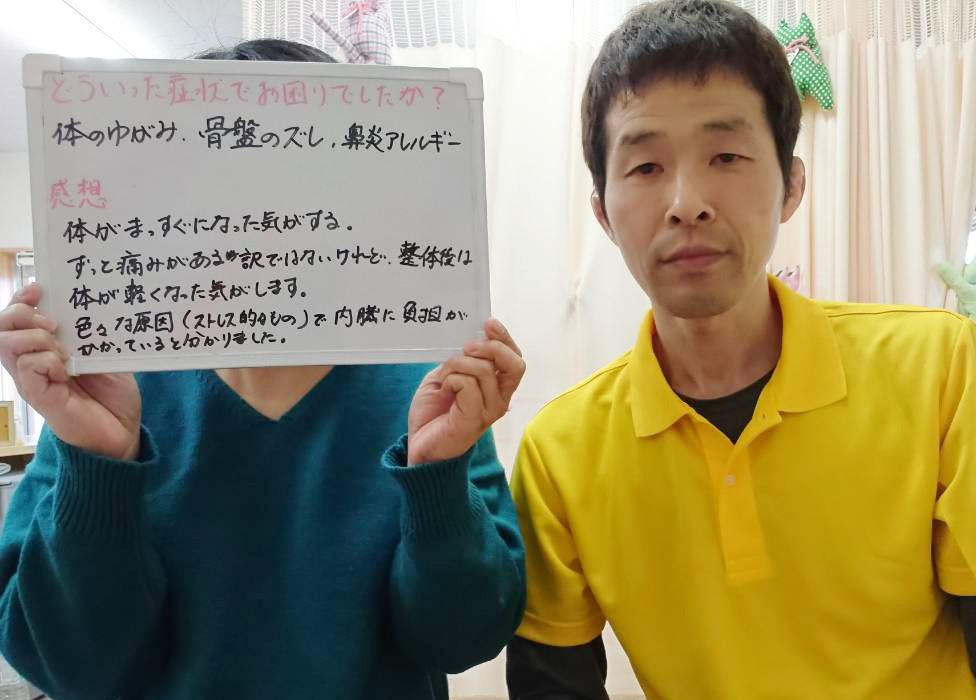 どういった症状でお困りでしたか？
体のゆがみ、骨盤のズレ、鼻炎アレルギー
感想
体がまっすぐになった気がする。
ずっと痛みがある訳ではないけれど、整体後は
体が軽くなった気がします。
色々な原因(ストレス的なもの)で内臓に負担が
かかっていると分かりました。